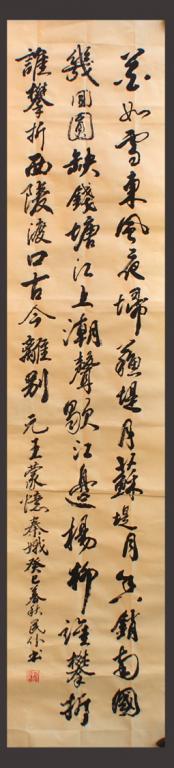 花如雪東風夜埽蘇堤月蘇堤月香銷南國
幾回圓缺錢塘江上潮聲歇江邊楊柳誰攀折
誰攀折西陵渡口古今離別 元王蒙憶秦娥癸巳秋民書